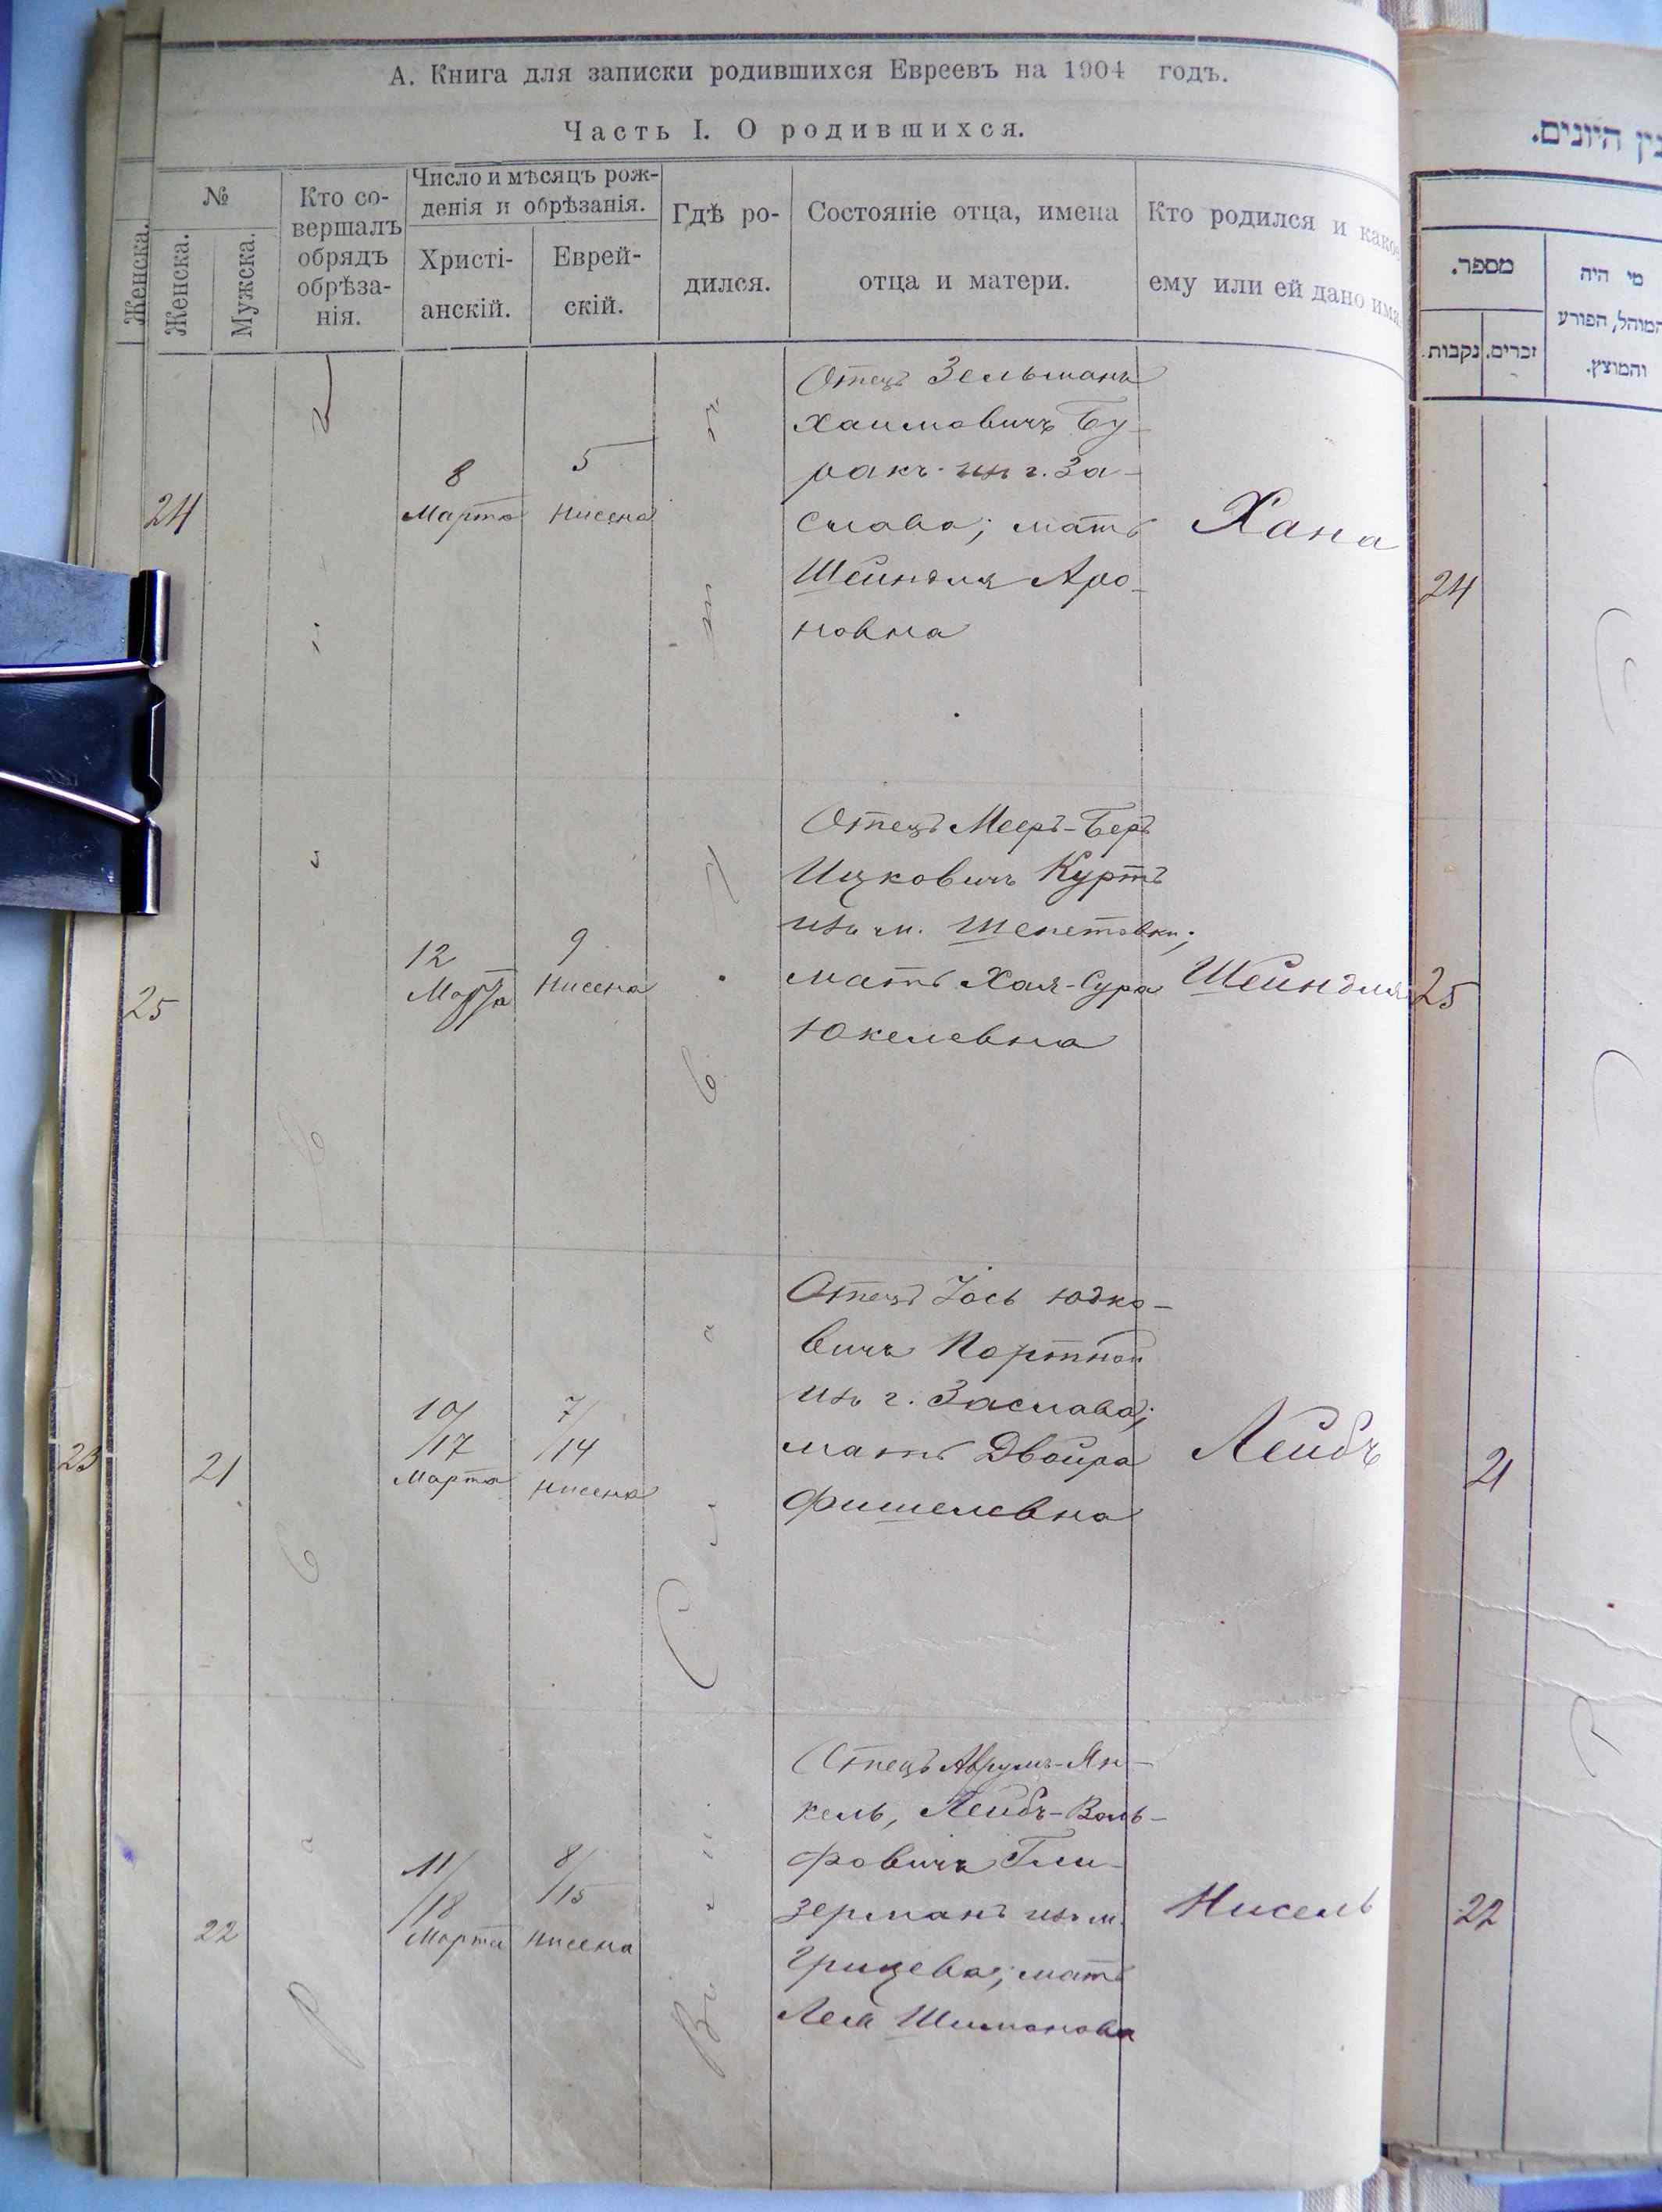 А. Книга для записки родившихся Евреевъ на 1904 годъ.
Часть I. О родившихся.
Женска.
№
Женска.
Мужска.
Кто со-
вершалъ
обрядъ
обрѣза-
нія.
Число и мѣсяцъ рож-
денія и обрѣзанія.
Христі-
анскій.
Еврей-
скій.
Гдѣ ро-
дился.
Состояніе отца, имена
отца и матери.
Кто родился и какое
ему или ей дано имя.
24
8
Марта
5
Нисена
Отецъ Зельманъ
Хаимовичъ Бу-
ракъ изъ г. За-
слава; мать
Шейндля Аро-
новна
Хана
25
12
Марта
9
Нисена
Отецъ Мееръ-Беръ
Ицковичъ Куртъ
изъ м. Шепетовки;
мать Хая-Сура
Юкелевна
Шейндля
23
21
10/
/17
Марта
7/
/14
Нисена
Отецъ Іось Юдко-
вичъ Портной
изъ г. Заслава;
мать Двойра
Фишелевна
Лейбъ
22
11/
/18
Марта
8/
/15
Нисена
Отецъ Аврумъ-Ян-
кель, Лейбъ-Воль-
фовичъ Гли-
зерманъ изъ м.
Грицева; мать
Лея Шимонова
Нисель
בין היונים.
מספר.
זכרים.
נקבות.
מי היה
המוהל, הפורע
והמוצץ.
24
25
21
22